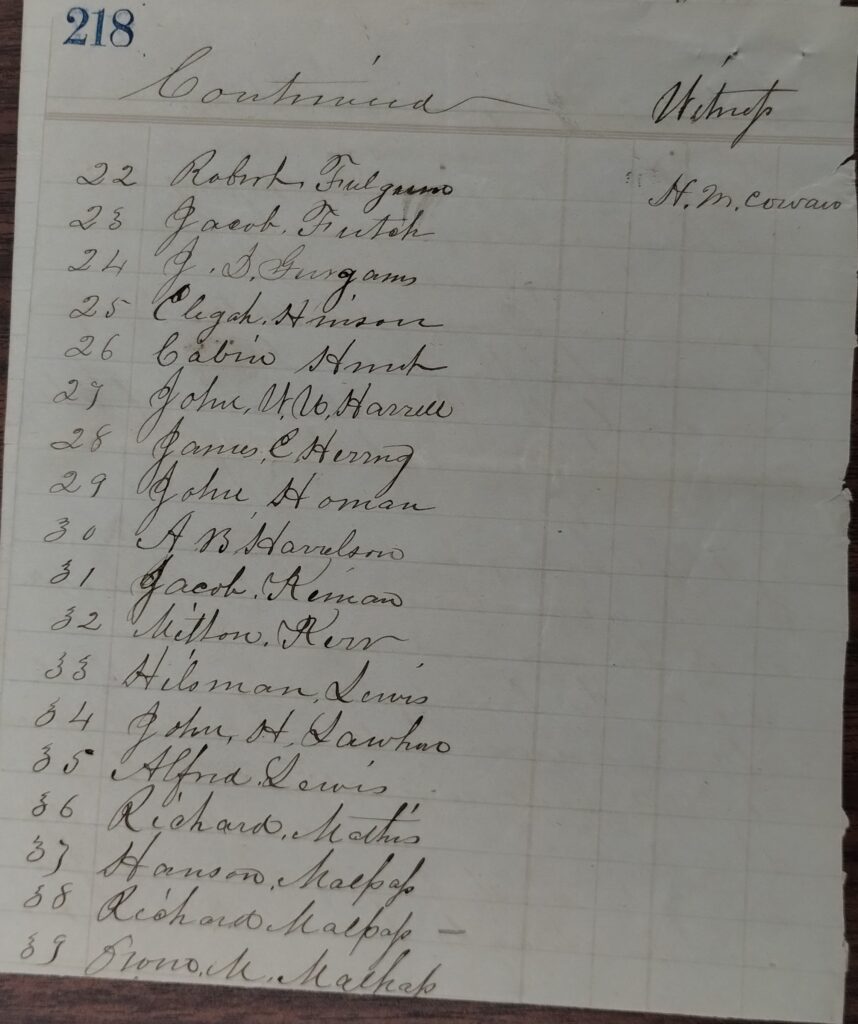 218
Continued Witness
22 Robert Fulgum H. M. Cowan
23 Jacob. Futch
24 J. D. Gurgans
25 Elegah. Hinson
26 Cabin Hunt
27 John, W. W. Harrell
28 James, C Herring
29 John Homan
30 A B Harrelson
31 Jacob. Keman
32 Milton. Kerr
33 Hilsman, Lewis
34 John, H, Lawhon
35 Alfred Lewis
36 Richard, Mathis
37 Hanson, Malpass
38 Richard Malpass –
39 M. Malpass